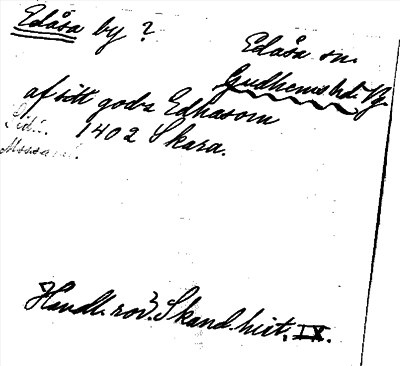 Edåsa by ?
Edåsa sn.
Gudhems hd. Vg.
af sitt goda Edhasom
1402 Skara.
Handl. rör. Skand. hist. IX.